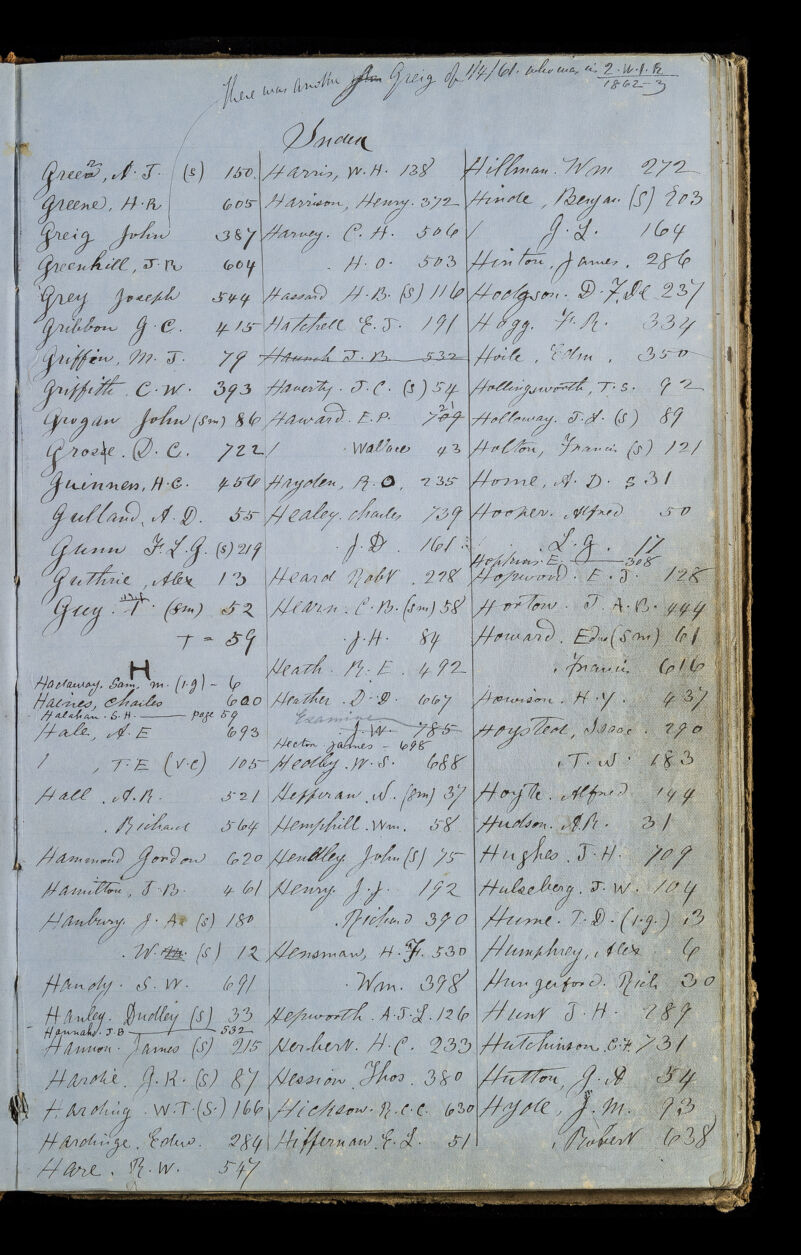 There was another Greig of 1/4/61. who was in 2. W.I.R
1862-3
Index
Greene, A. J. (S) 150.
Greene, H. R 605
Greig John 387
Greenhill, J. R 604
Grey Joseph 544
Gribbon G. C. 415
Griffin, M. J. 79
Griffith, C. W. 393
Grogan John (sm) 86
Grose. D. C. 722
Guinness, H. C. 456
Gulland, A. D. 55
Gunn F. L. G. (S) 219
Guthrie, Alex 13
Guy. T. (sm) 52
T = 59
H
Hadaway. Sam. m. (1.g) - 6
Haines, Charles 600
Halahan. S. H. page 59
Hale, A. E 693
, T. E (V.C) 105
Hall. A. R. 521
. Richard 564
Hammond Gordon 620
Hamilton, J. B. 461
Hanbury. J. A. (S) 180
. W. (S) 12
Handy. S. W. 691
Hanley. Dudley (S) 33
Hannah. J. B 532
Hannon. James (S) 215
Hardie. G. K. (S) 87
Harding. W. T. (S.) 166
Hardinge. Edw. 284
Hare. R. W. 547
Harris, W. H. 138
Harrison, Henry. 372
Harvey. C. H. 506
. H. O. 503
Hassard H. B. (S) 116
Hatchell E. J. 191
Hannah J. B. 532
Haverty. J. C. (S) 54
Haward. E. P.
/ . Wallace 43
Hayden, R. O. 235
Healey. Charles 739
. J. D. 161
Heard Robt. 228
Hearn. C. B. (sm) 58
. J. H. 84
Heath. R. E. 492
Heather. D. D. 667
Examiner
. J. W. 785
Hector James - 698
Hedley. W. S. 688
Hefferan. N. (sm) 37
Hemphill. Wm. 58
Hendley John (S) 75
Henry. J. J. 192
. Richard 390
Hensman, H. F. 530
. Wm. 398
Hepworth. A. J. L. 126
Herbert. H. C. 233
Hession. Thos. 380
Hickson. R. C. C. 630
Hiffernan. E. L. 51
Hillman. Wm 272
Hinde, Benjan. (S) 203
/ G. L. 164
Hinton, James. 286
Hodgson. D. F. De 237
Hogg. F. R. 334
Hoile, Edm 350
Hollingsworth, T. S. 92
Holloway. J. L. (S) 89
Holton, Francis (S) 121
Home, A. D. S 31
Hooper. Alfred 50
. L. G. 17
Hopkins. E. 308
Hopwood. E. J. 128
Horton. J. A. B. 444
Howard. Edw (Sm) 61
. Francis 616
Howison. H. Y. 437
Hoysted, Isaac. 290
. T. N. 183
Hoyte. Alfred 144
Hudson. A. R. 31
Hughes. J. H. 709
Hulseberg. J. W. 104
Hume. T. D. (1.g.) 13
Humphrey, Alex 6
Hungerford. Rich 30
Hunt J. H. 289
Hutchinson, C. F. 731
Hutton, G. A 54
Hyde, J. M. 93
. Robert 638